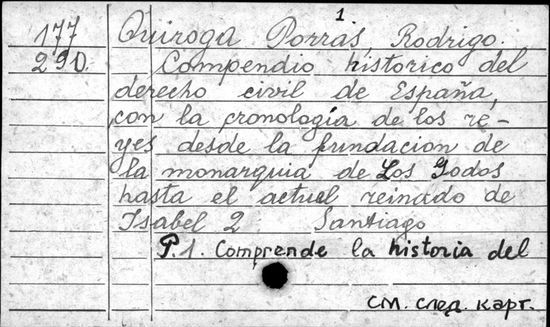 1.
177 Quiroga Porras, Rodrigo.
290. Compendio historico del
derecho civil de España,
con la cronología de los re-
yes desde la fundacion de
la monarquia de Los Godos
hasta el actuel reinado de
Isabel 2 Santiago
P.1. Comprende la historia del
см. след. карт.